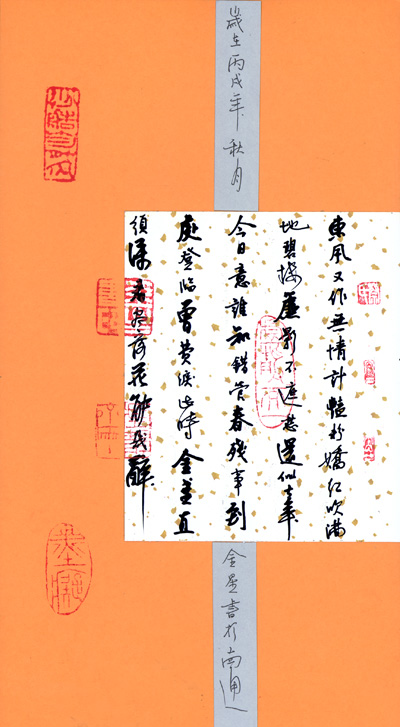 歲在丙戌年 秋月
東風又作無情計艷粉嬌紅吹滿
地碧樓簾影不遮愁還似去年
今日意誰知錯管春殘事到
處登臨曾費淚此時金盞直
須深看盡落花能幾醉
金星書於南通